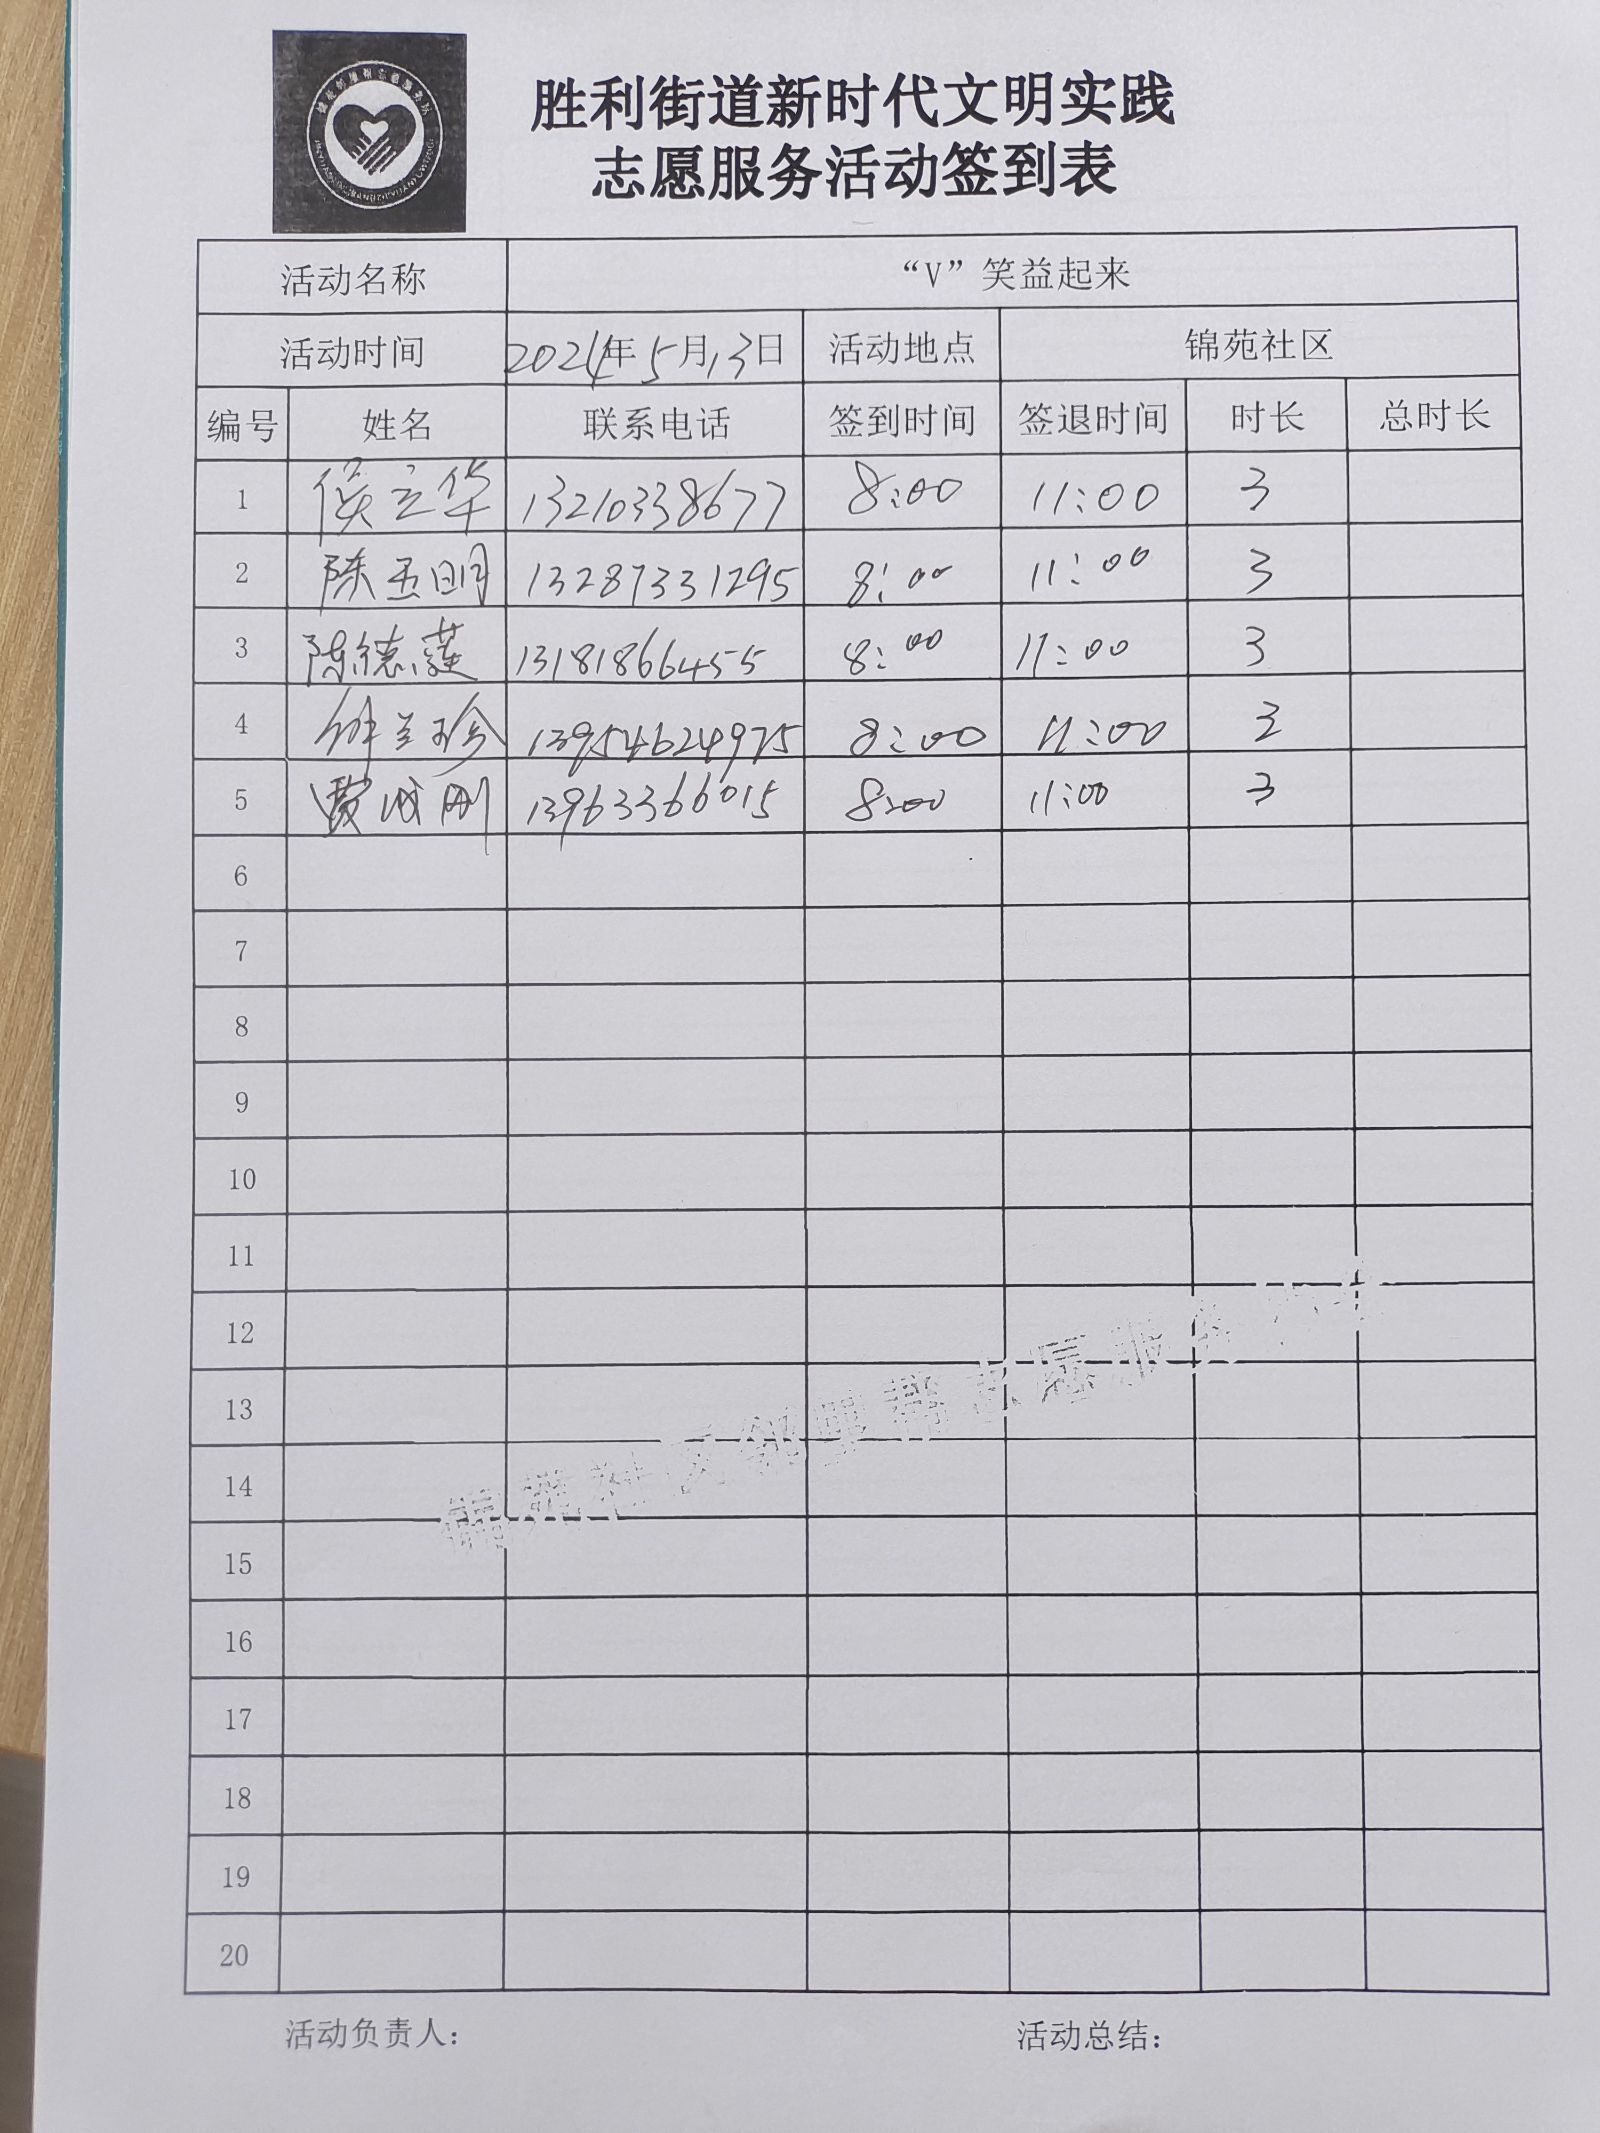 胜利街道新时代文明实践
志愿服务活动签到表
活动名称 “V”笑益起来
活动时间 2024年5月13日 活动地点 锦苑社区
编号 姓名 联系电话 签到时间 签退时间 时长 总时长
1 侯立华 13210338677 8:00 11:00 3
2 陈玉明 13287331295 8:00 11:00 3
3 陈德莲 13181866455 8:00 11:00 3
4 兰珍 13954624975 8:00 11:00 3
5 贾成刚 13963366015 8:00 11:00 3
6
7
8
9
10
11
12
13
14
15
16
17
18
19
20
锦苑社区邻里帮志愿服务
活动负责人: 活动总结: